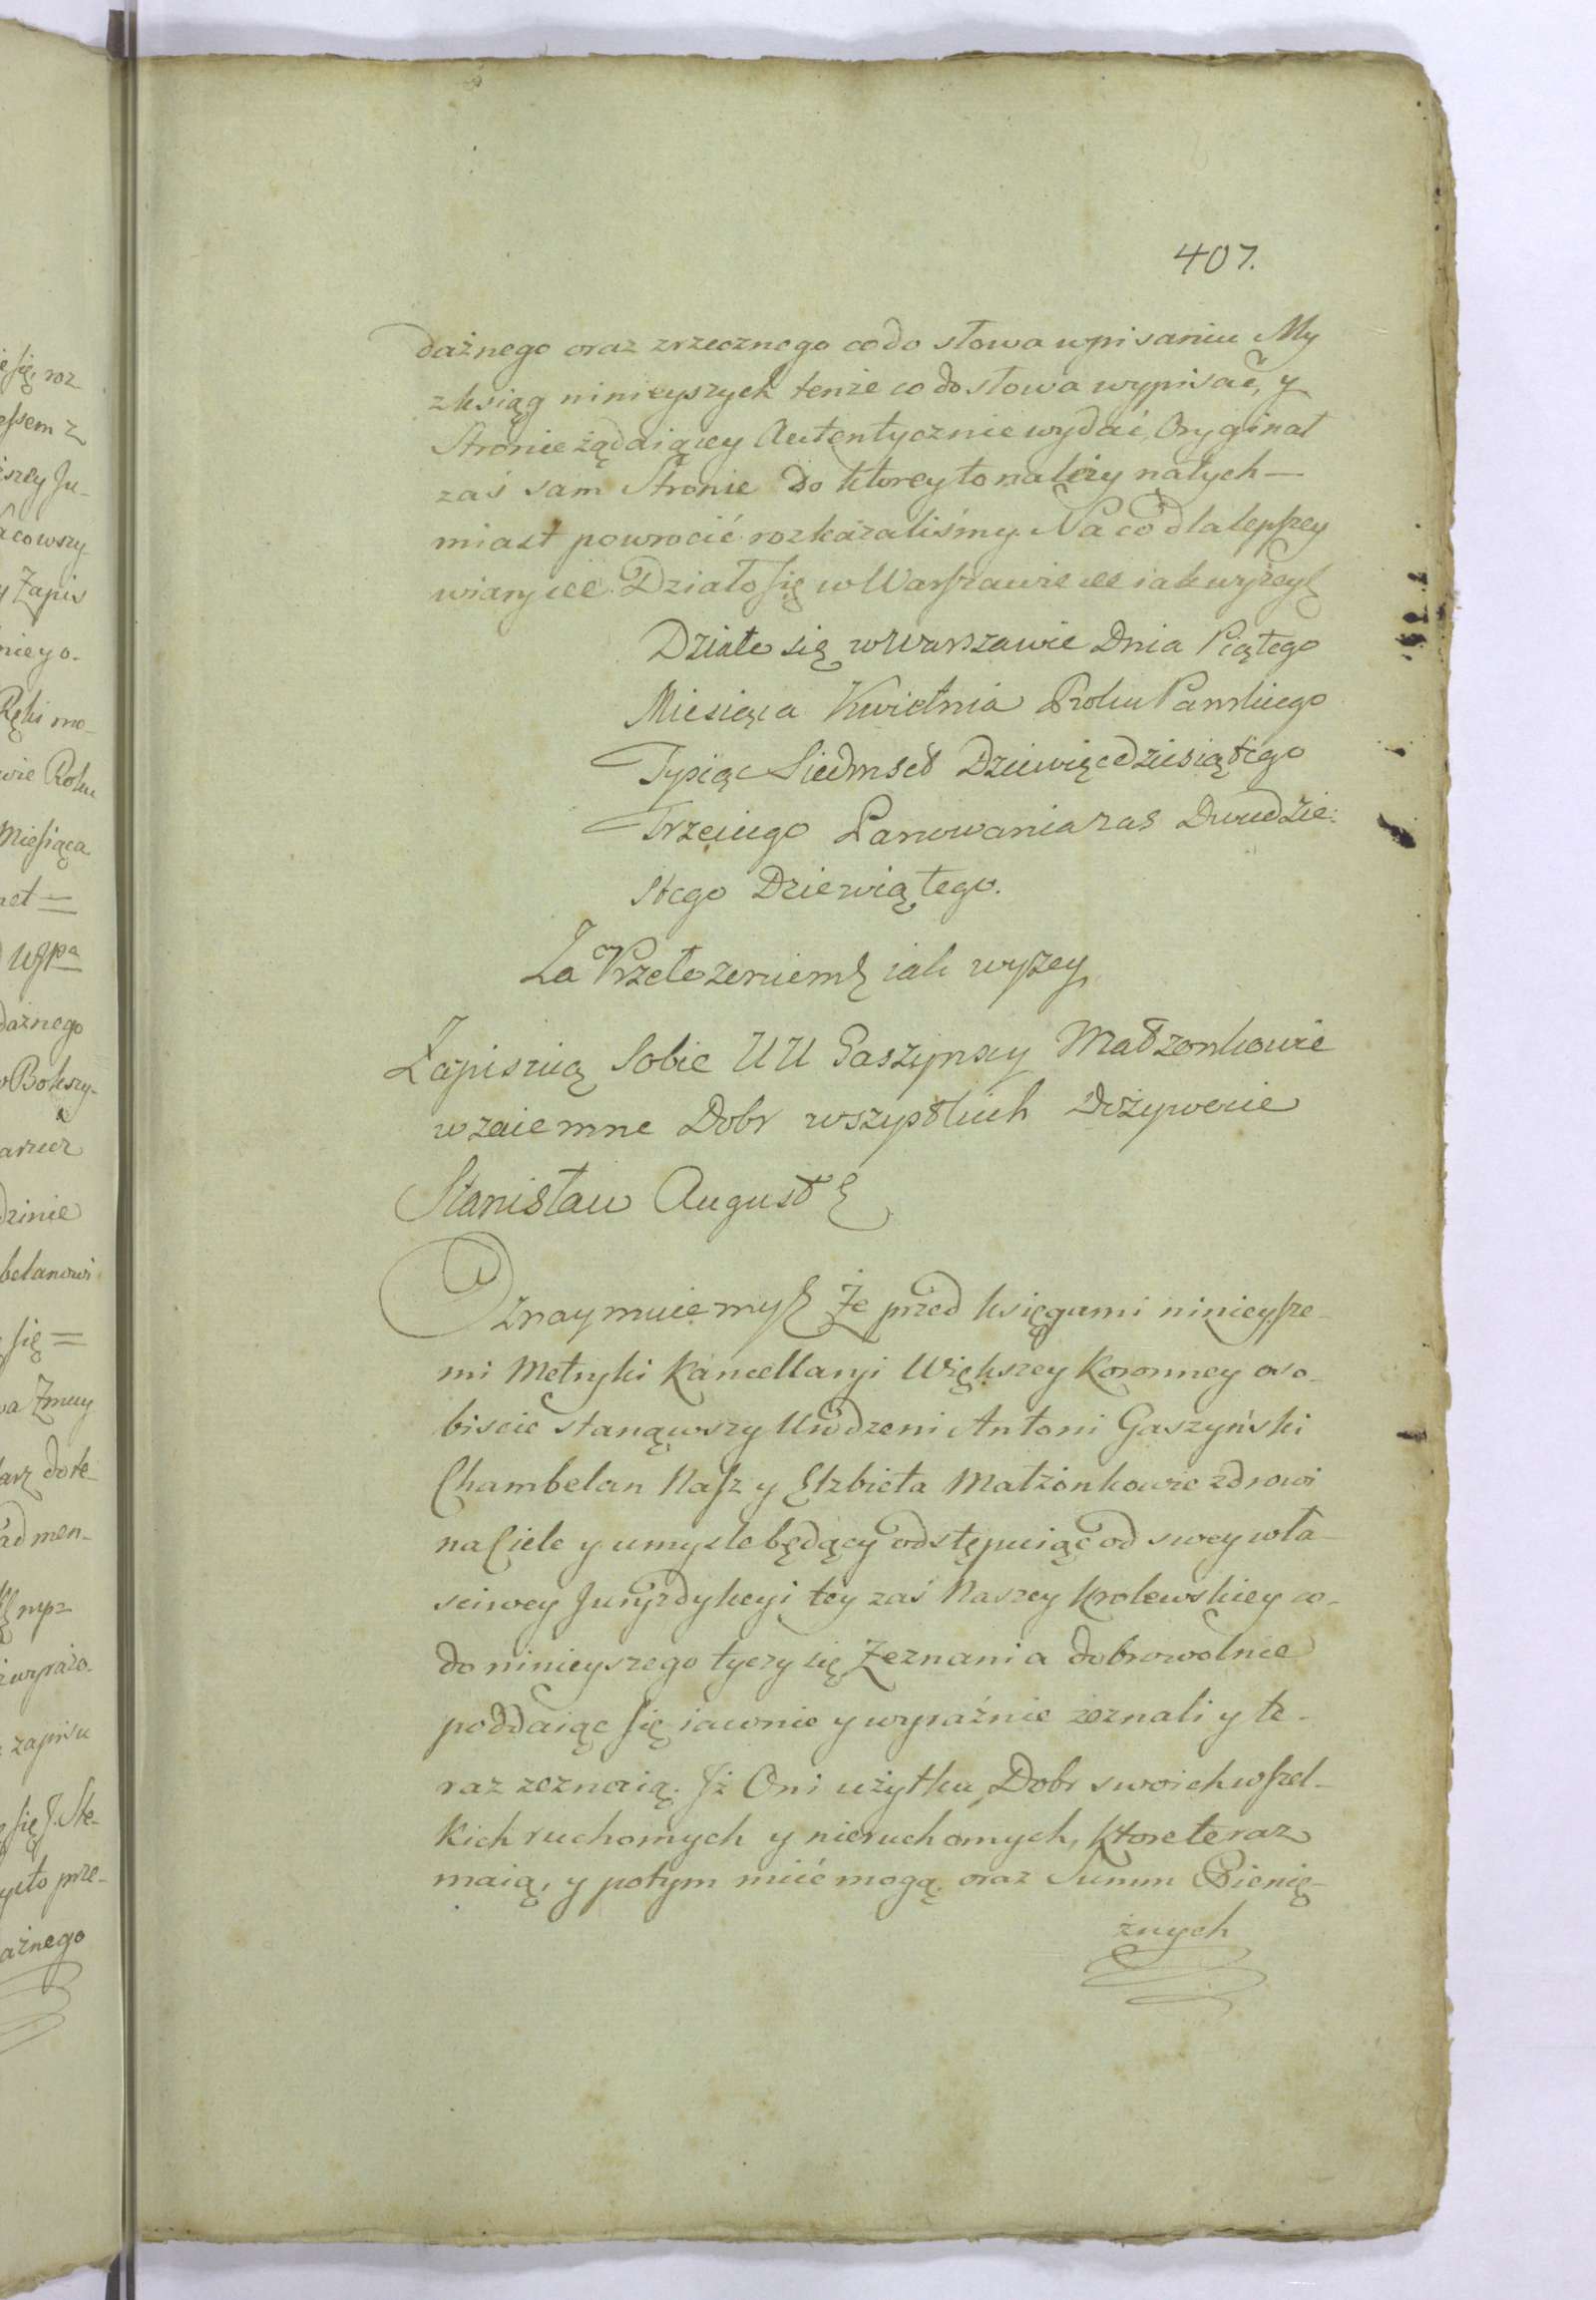 407.
dażnego oraz zrzecznego co do słowa wpisaniu My
z ksiąg ninieyszych tenże co do słowa wypisać, y
Stronie żądaiącey Autentycznie wydać, Oryginał
zaś sam Stronie do ktorey to należy natych-
miast powrocić rozkazaliśmy. Na co dla lepszey
wiary &c. Działo się w Warszawie &c iak wyżey
Działo się w Warszawie Dnia Piątego
Miesiąca Kwietnia Roku Panskiego
Tysiąc Siedmset Dziewięcdziesiątego
Trzeciego Panowania zas Dwudzie:
stego Dziewiątego.
Za Przełozeniem iak wyszey
Zapisuią Sobie UU Gaszynscy Małzonkowie
wzaiemne Dobr wszystkich Dożywocie
Stanisław August
Oznaymuiemy Że przed księgami ninieysze-
mi Metryki Kancellaryi Większey Koronney oso-
biscie stanąwszy Urodzeni Antoni Gaszyński
Chambelan Nasz y Elzbieta Małżonkowie zdrowi
na Ciele y umysle będący odstępuiąc od swey wła-
sciwey Juryzdykcyi tey zaś Naszey Krolewskiey co-
do ninieyszego tyczy się Zeznania dobrowolnie
poddaiąc się iawnie y wyraźnie zeznali y te-
raz zeznaią. Iż Oni użytku Dobr swoich wszel-
kich ruchomych y nieruchomych, ktore teraz
maią, y potym mieć mogą. oraz Summ Pienię-
żnych